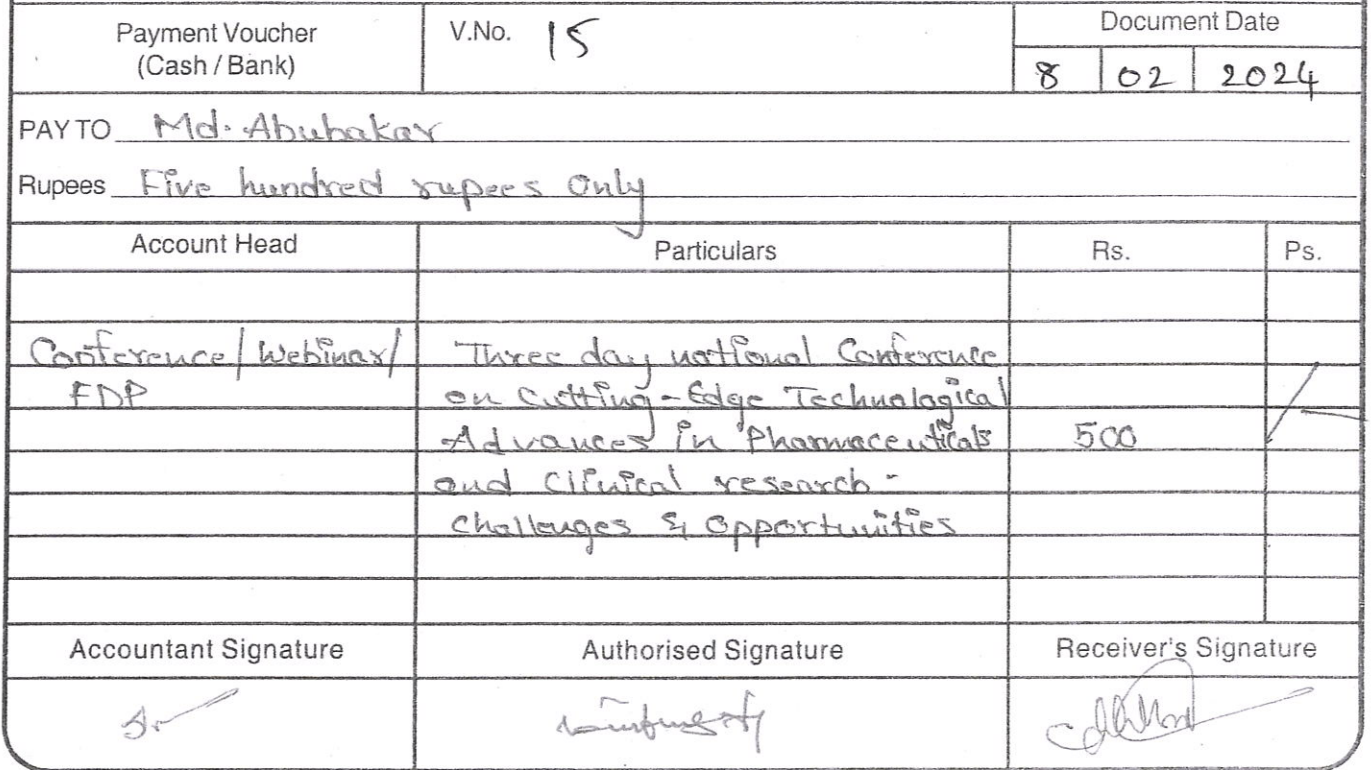 Payment Voucher
(Cash / Bank)
V.No. 15
Document Date
8 02 2024
PAY TO Md. Abubakar
Rupees Five hundred rupees Only
Account Head Particulars Rs. Ps.
Conference/Webinar/ Three day national Conference
FDP on Cutting-Edge Technological
Advances in Pharmaceuticals 500
and Clinical research -
Challenges & Opportunities
Accountant Signature Authorised Signature Receiver's Signature